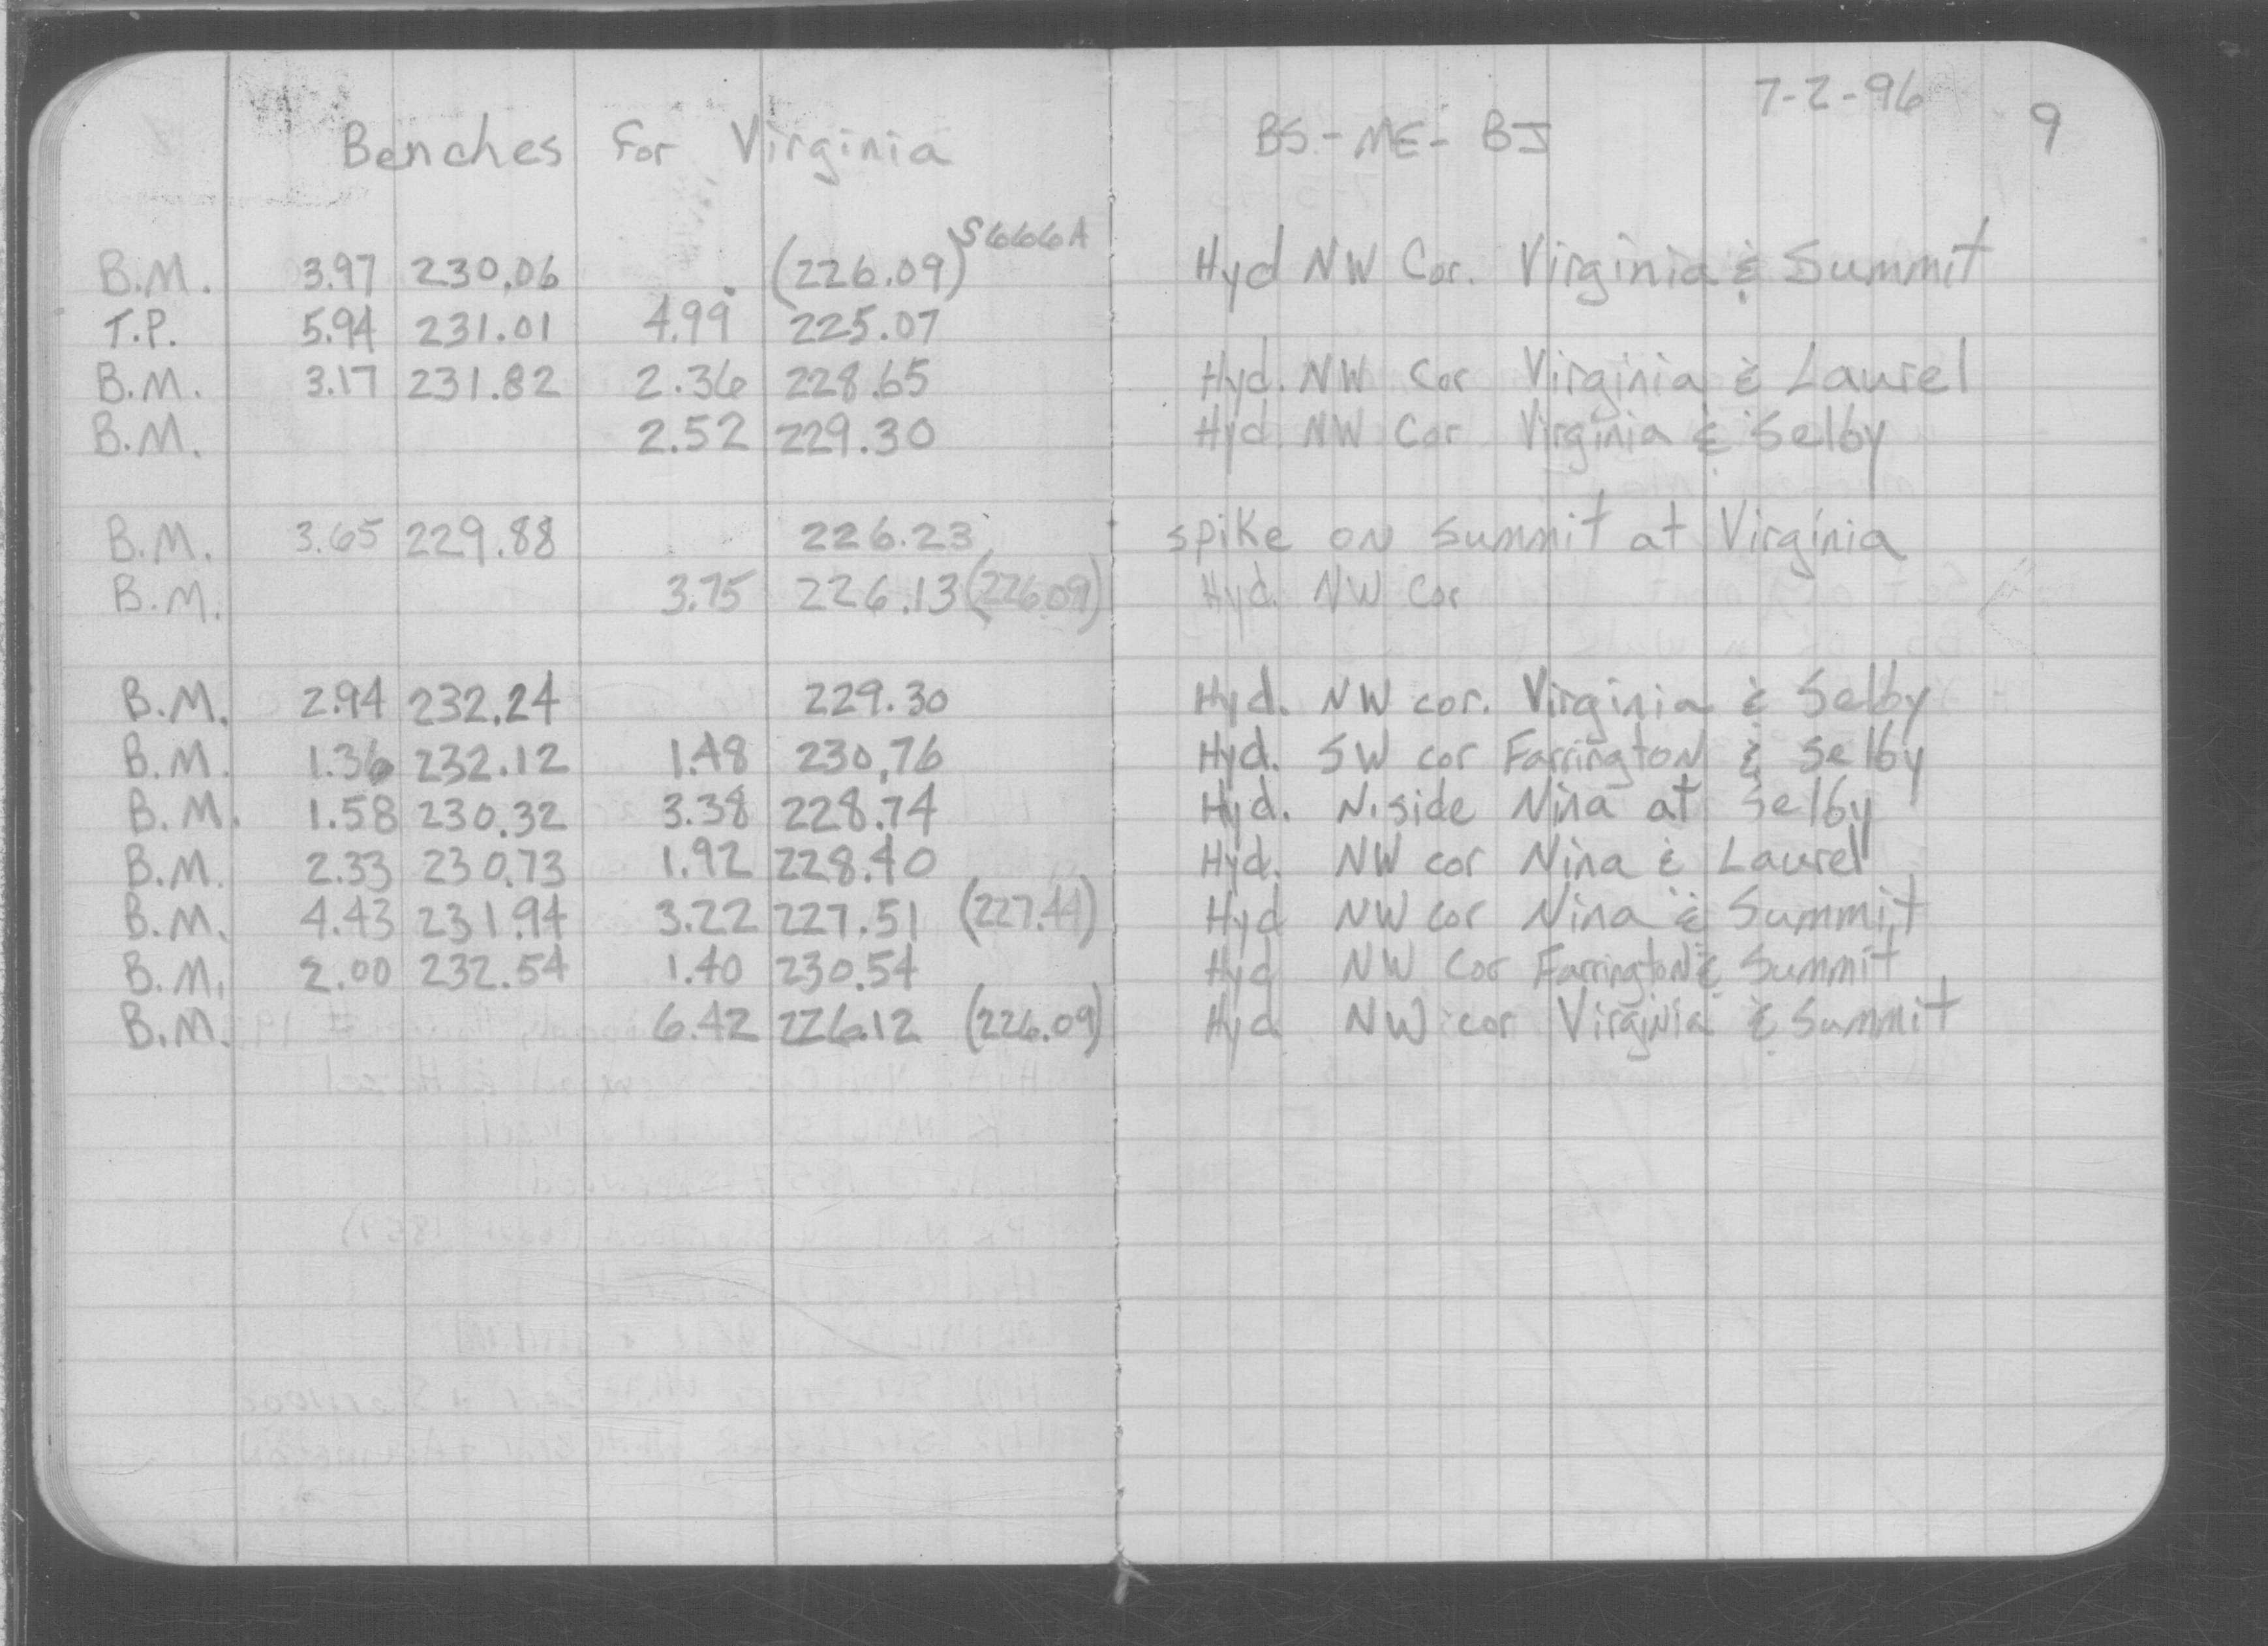 7-2-96
9
Benches for Virginia BS-ME-BJ
S666A
B.M. 3.97 230.06 (226.09) Hyd NW Cor. Virginia & Summit
T.P. 5.94 231.01 4.99 225.07
B.M. 3.17 231.82 2.36 228.65 Hyd. NW Cor Virginia & Laurel
B.M. 2.52 229.30 Hyd. NW Cor Virginia & Selby
B.M. 3.65 229.88 226.23 spike on Summit at Virginia
B.M. 3.75 226.13 (226.09) Hyd. NW Cor
B.M. 2.94 232.24 229.30 Hyd. NW cor. Virginia & Selby
B.M. 1.36 232.12 1.48 230.76 Hyd. SW cor Farrington & Selby
B.M. 1.58 230.32 3.38 228.74 Hyd. N. side Nina at Selby
B.M. 2.33 230.73 1.92 228.40 Hyd. NW cor Nina & Laurel
B.M. 4.43 231.94 3.22 227.51 (227.44) Hyd NW cor Nina & Summit
B.M. 2.00 232.54 1.40 230.54 Hyd NW Cor Farrington & Summit
B.M. 6.42 226.12 (226.09) Hyd NW cor Virginia & Summit